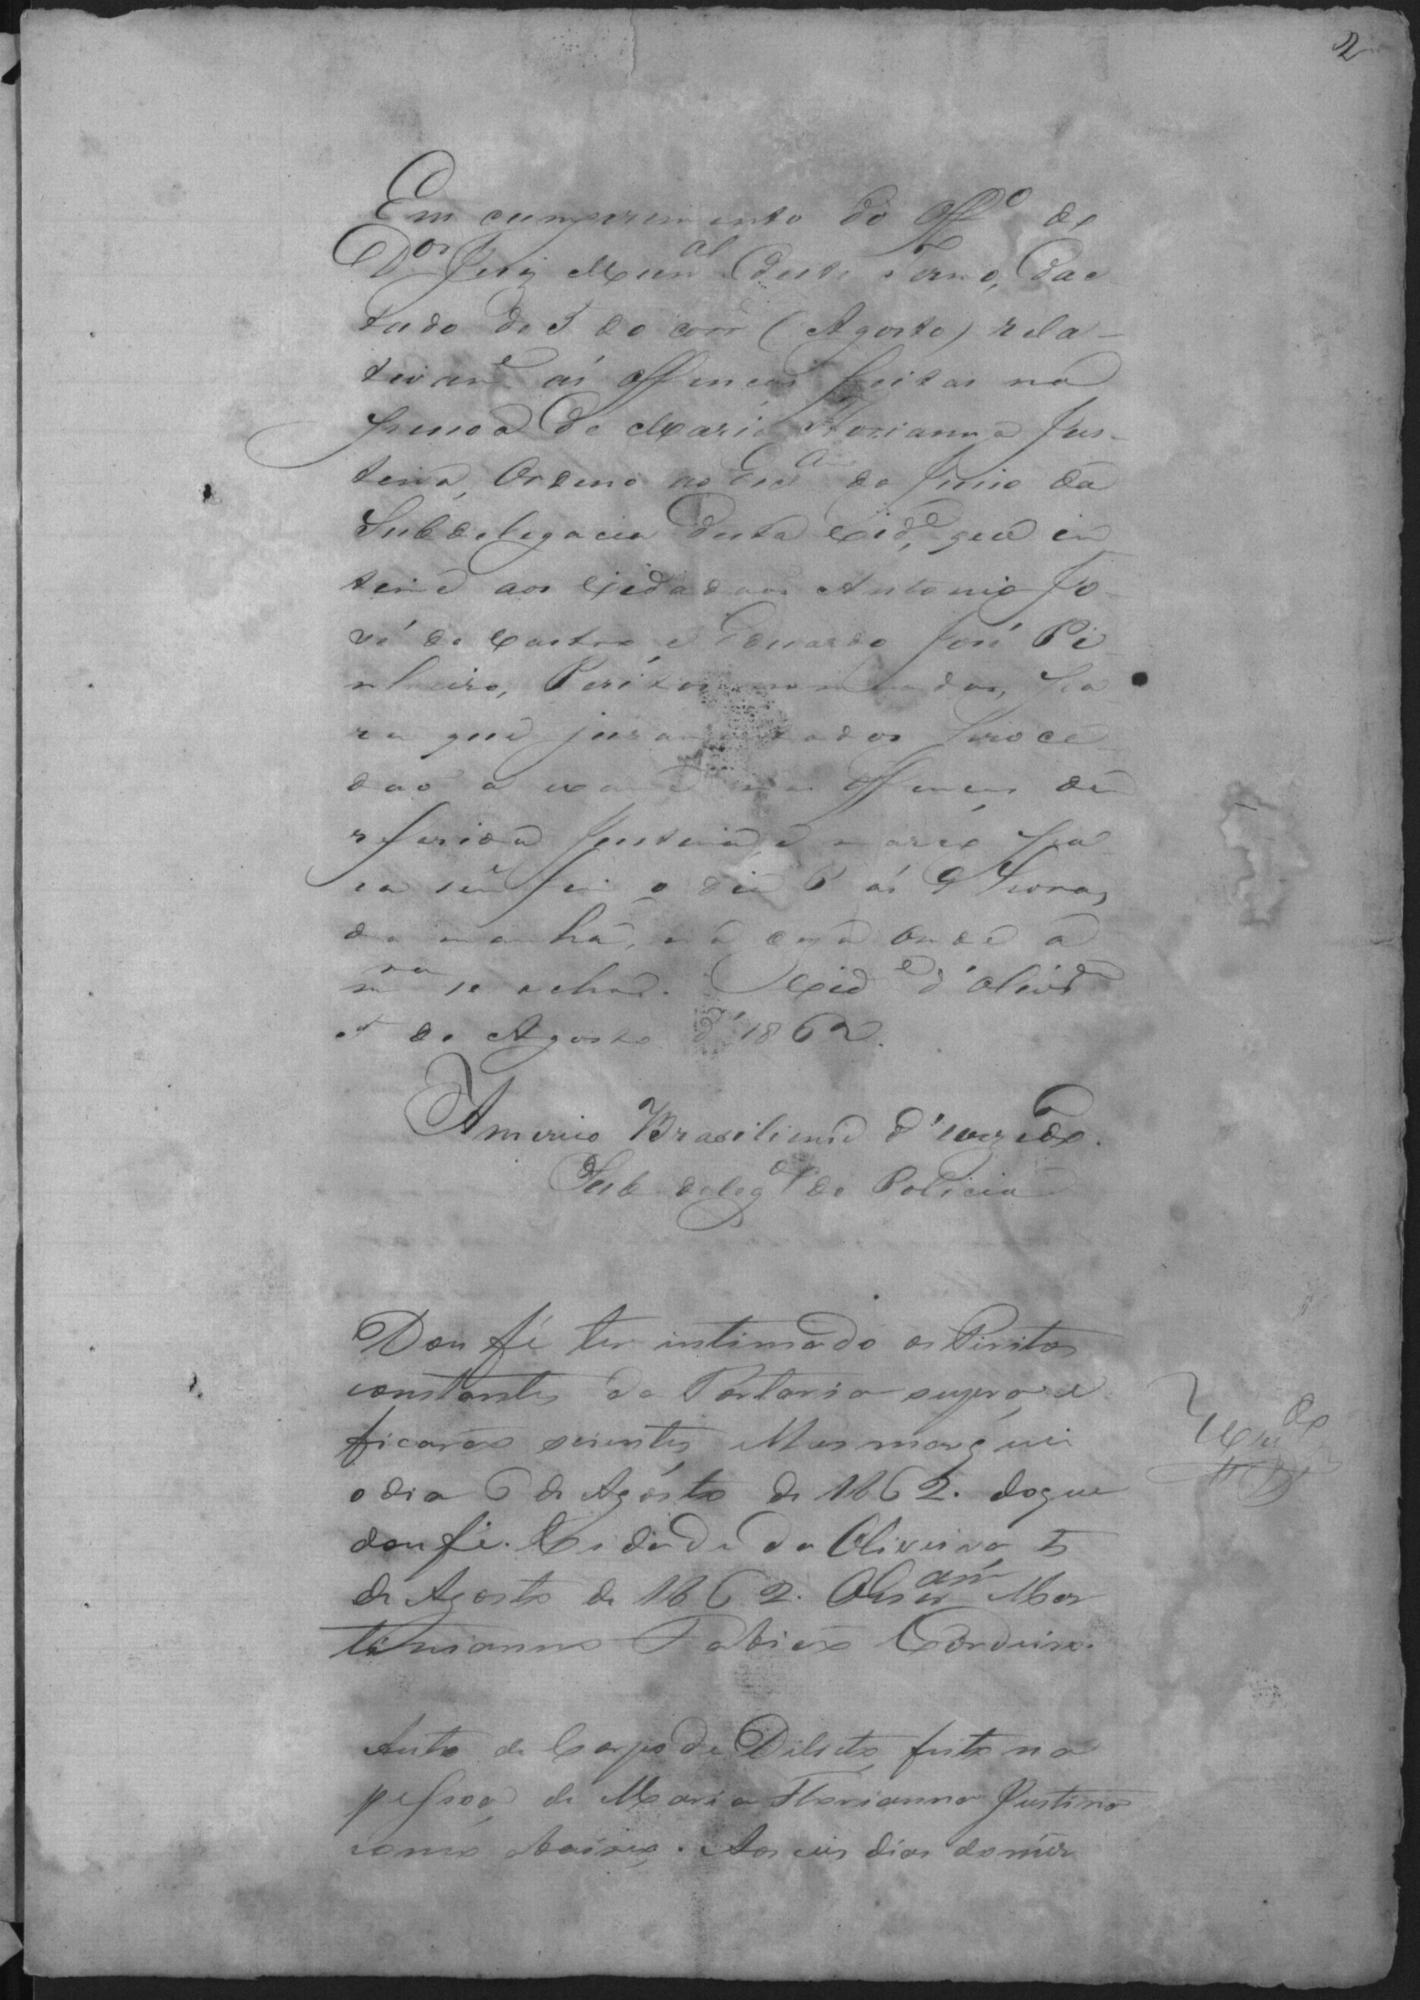 2
Em cumprimento do Off.º do
D.or Juiz Mun.al deste Termo, dac
tado de 5 do corr.e (Agosto) rela-
tivam.e ás offenças feitas na
pessoa de Maria Florianna Jus-
tina, Ordeno ao Esc.am do Juizo da
Subdelegacia desta Cid.e, que in
time aos Cidadaos Antonio Jo-
sé de Castro e Eduardo José Pi
nheiro, Peritos nomeados, pa
ra que juramentados proce
dao a exame nas offenças da
referida Justina e marco pa
ra esse fim o dia 6 ás 9 horas
da manhã, na casa onde a
m.ma se achar. Cid.e d'Olivr.a
5 de Agosto d'1862.
Americo Brasiliense d'
Subdeleg.do de Policia
Dou fé ter intimado os Peritos
constantes da Portaria supra, e
ficarão scientes Mas marquei
o dia 6 de Agosto de 1862. do que
dou fé. Cidade da Oliveira 5
de Agosto de 1862. O Escr.am Mar
tinianno Fabiao Cordeiro.
Auto de Corpo de Dilicto feito na
pessoa de Maria Florianna Justina
como abaixo. Aos seis dias do mez